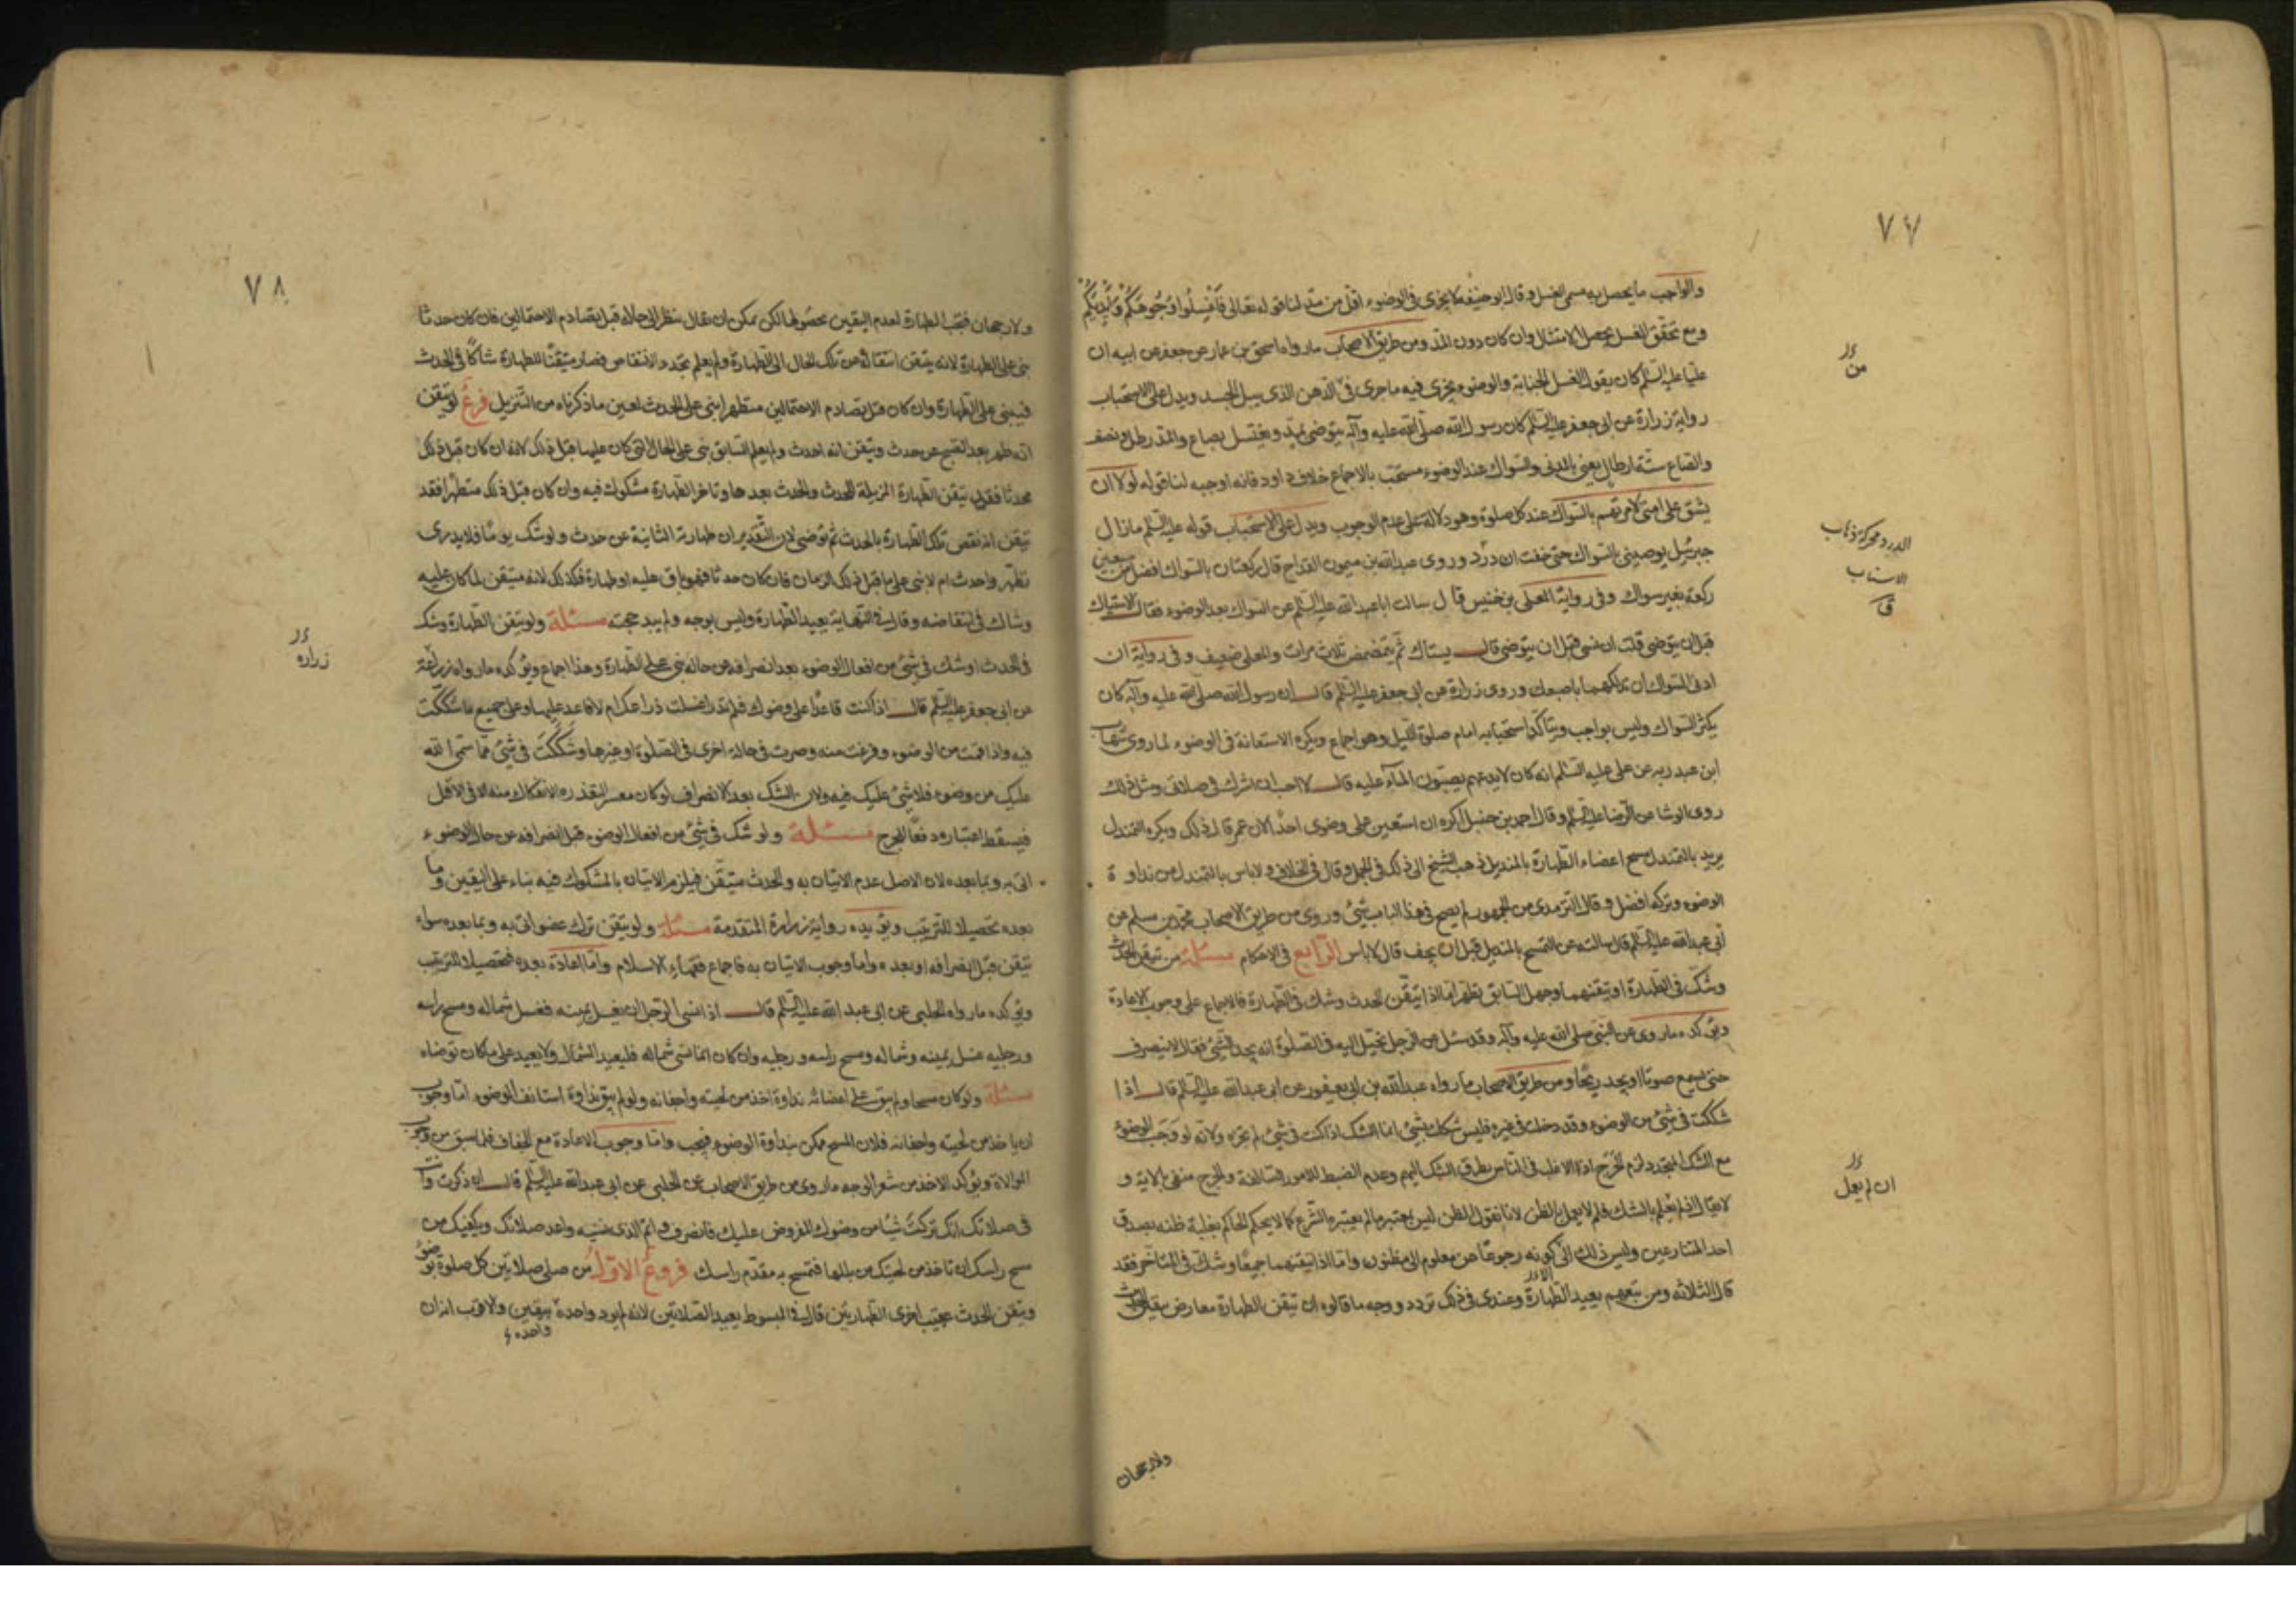 ٧٧
والواجب ما يحصل به مسمى الغسل وقال ابو حنيفه لا يجزى فى الوضوء اقل من مد لنا قوله تعالى فَاغْسِلُوا وُجُوهَكُمْ وَاَيْدِيَكُمْ
ومع تحقق الغسل يحصل الامتثال وان كان دون المد ومن طريق الاصحاب ما رواه اسحق بن عمار عن جعفر عن ابيه ان
عليا عليه السلم كان يقول الغسل الجنابة والوضوء يجزى فيه ما جرى فى الدهن الذى يبل الجسد ويدل على الاستحباب
رواية زرارة عن ابى جعفر عليه السلم كان رسول الله صلى الله عليه وآله يتوضى بمد ويغتسل بصاع والمد رطل ونصف
والصاع ستة ارطال يعنى بالمدنى والسواك عند الوضوء مستحب بالاجماع خلاف داود فانه اوجبه لنا قوله لولا ان
يشق على امتى لامرتهم بالسواك عند كل صلوة وهو دلالة على عدم الوجوب ويدل على الاستحباب قوله عليه السلم ما زال
جبرئيل يوصينى بالسواك حتى خفت ان درد وروى عبد الله بن ميمون القداح قال ركعتان بالسواك افضل من سبعين
ركعة بغير سواك وفى رواية المعلى بن خنيس قال سالت ابا عبد الله عليه السلم عن السواك بعد الوضوء فقال الاستياك
قبل ان يتوضى قلت ان نسى قبل ان يتوضى قال يستاك ثم يتمضمض ثلث مرات والمعلى ضعيف وفى رواية ان
ادنى السواك ان تدلكهما باصبعك وروى زرارة عن ابى جعفر عليه السلم قال ان رسول الله صلى الله عليه وآله كان
يكثر السواك وليس بواجب ويتاكد استحبابه امام صلوة الليل وهو اجماع ويكره الاستعانة فى الوضوء لما روى شهاب
ابن عبد ربه عن على عليه السلم انه كان لا يدعهم يصبون المآء عليه قال لا احب ان اشرك فى صلاتى ومثل ذلك
روى الوشا عن الرضا عليه السلم وقال احمد بن حنبل اكره ان استعين على وضوى احدا لان عمر قال ذلك ويكره التمندل
يريد بالتمندل مسح اعضاء الطهارة بالمنديل ذهب الشيخ الى ذلك فى الجمل وقال فى الخلاف ولا باس بالتمندل من نداوة
الوضوء وتركه افضل وقال الترمدى من الجمهور لم يصح فى هذا الباب شئ وروى من طريق الاصحاب محمد بن مسلم عن
ابى عبد الله عليه السلم قال سالته عن التمسح بالمنديل قبل ان يجف قال لا باس الرابع فى الاحكام مسئلة من تيقن الحدث
وشك فى الطهارة او تيقنهما وجهل السابق تطهر اما اذا تيقن الحدث وشك فى الطهارة فالاجماع على وجوب الاعادة
ويؤكده ما روى عن النبى صلى الله عليه وآله وقد سئل عن الرجل يخيل اليه فى الصلوة انه يجد الشئ فقال لا ينصرف
حتى يسمع صوتا او يجد ريحا ومن طريق الاصحاب ما رواه عبد الله بن ابى يعفور عن ابى عبد الله عليه السلم قال اذا
شككت فى شئ من الوضوء وقد دخلت فى غيره فليس شكك بشئ انما الشك اذا كنت فى شئ لم تجزه ولانه لو وجب الوضوء
مع الشك المتجدد لزم الحرج اذ الاغلب فى الناس تطرق الشك اليهم وعدم الضبط للامور السالفة والحرج منفى بالاية و
لا يقال اذا لم يعلم بالشك فلم لا يعمل بالظن لانا نقول الظن ليس يعتبر ما لم يعتبره الشرع كما لا يحكم الحاكم بغلبة ظنه بصدق
احد المتنازعين وليس ذلك الا كونه رجوعا عن معلوم الى مظنون واما اذا تيقنهما جميعا وشك فى المتاخر فقد
قال الثلاثه ومن تبعهم يعيد الطهارة وعندى فى ذلك تردد ووجه ما قالوه ان تيقن الطهارة معارض بيقين الحدث
ولا رجحان
من
الدرد محركة ذهاب
الاسنان
ق
ان لم يعمل
٧٨
ولا رجحان فيجب الطهارة لعدم اليقين بحصولها لكن يمكن ان يقال ينظر الى حاله قبل تصادم الاحتمالين فان كان حدثا
بنى على الطهارة لانه يتيقن انتقاله عن تلك الحال الى الطهارة ولم يعلم تجدد الانتقاض فصار متيقنا للطهارة شاكا فى الحدث
فيبنى على الطهارة وان كان قبل تصادم الاحتمالين متطهرا بنى على الحدث لعين ما ذكرناه من التنزيل فرع لو تيقن
انه تطهر بعد الصبح عن حدث وتيقن انه احدث ولم يعلم السابق بنى على الحال التى كان عليها قبل ذلك لانه ان كان قبل ذلك
محدثا فقد تيقن الطهارة المزيلة للحدث والحدث بعدها وتاخر الطهارة مشكوك فيه وان كان قبل ذلك متطهرا فقد
تيقن انه نقض تلك الطهارة بالحدث ثم توضى لان التقدير ان طهارته الثانية عن حدث ولو شك يوما فلا يدرى
تطهر واحدث ام لا بنى على ما قبل ذلك الزمان فان كان حدثا فهو باق عليه او طهارة فكذلك لانه متيقن لما كان عليه
وشاك فى انتقاضه وقال فى النهاية يعيد الطهارة وليس بوجه ولم يبد حجته مسئلة ولو تيقن الطهارة وشك
فى الحدث او شك فى شئ من افعال الوضوء بعد انصرافه عن حاله بنى على الطهارة وهذا اجماع ويؤكده ما رواه زرعة
عن ابى جعفر عليه السلم قال اذا كنت قاعدا على وضوءك فلم تدر اغسلت ذراعك ام لا فاعد عليهما وعلى جميع ما شككت
فيه واذا قمت من الوضوء وفرغت منه وصرت فى حالة اخرى فى الصلوة او غيرها وشككت فى شئ مما سمى الله
عليك من وضوء فلا شئ عليك فيه ولان الشك بعد الانصراف لو كان معتبرا لتعذر الانفكاك منه الا فى الاقل
فيسقط اعتباره دفعا للحرج مسئلة ولو شك فى شئ من افعال الوضوء قبل انصرافه عن حال الوضوء
اتى به وبما بعده لان الاصل عدم الاتيان به والحدث متيقن فيلزم الاتيان بالمشكوك فيه بناء على اليقين وما
بعده تحصيلا للترتيب ويؤيده رواية زرارة المتقدمة مسئلة ولو تيقن ترك عضو اتى به وبما بعده سواء
تيقن قبل انصرافه او بعده واما وجوب الاتيان به فاجماع فقهاء الاسلام واما اعادة بعده فتحصيلا للترتيب
ويؤكده ما رواه الحلبى عن ابى عبد الله عليه السلم قال اذا نسى الرجل ان يغسل يمينه فغسل شماله ومسح راسه
ورجليه غسل يمينه وشماله ومسح راسه ورجليه وان كان انما نسى شماله فليعيد الشمال ولا يعيد على ما كان توضاء
مسئلة ولو كان مسحا ولم يبق على اعضائه نداوة اخذ من لحيته واجفانه ولو لم يبق نداوة استانف الوضوء اما وجوب
ان ياخذ من لحيته واجفانه فلان المسح ممكن بنداوة الوضوء فيجب واما وجوب الاعادة مع الجفاف فلما سبق من وجوب
الموالاة ويؤكد الاخذ من شعر الوجه ما روى من طريق الاصحاب عن الحلبى عن ابى عبد الله عليه السلم قال ان ذكرت وانت
فى صلاتك انك تركت شيئا من وضوءك المفروض عليك فانصرف واتم الذى نسيته واعد صلاتك ويكفيك من
مسح راسك ان تاخذ من لحيتك من بللها فتمسح به مقدم راسك فروع الاول من صلى صلاتين كل صلوة بوضوء
وتيقن الحدث عقيب احدى الطهارتين قال فى المبسوط يعيد الصلاتين لانه لم يود واحدة بيقين والاقرب انه ان
واحده
زراره